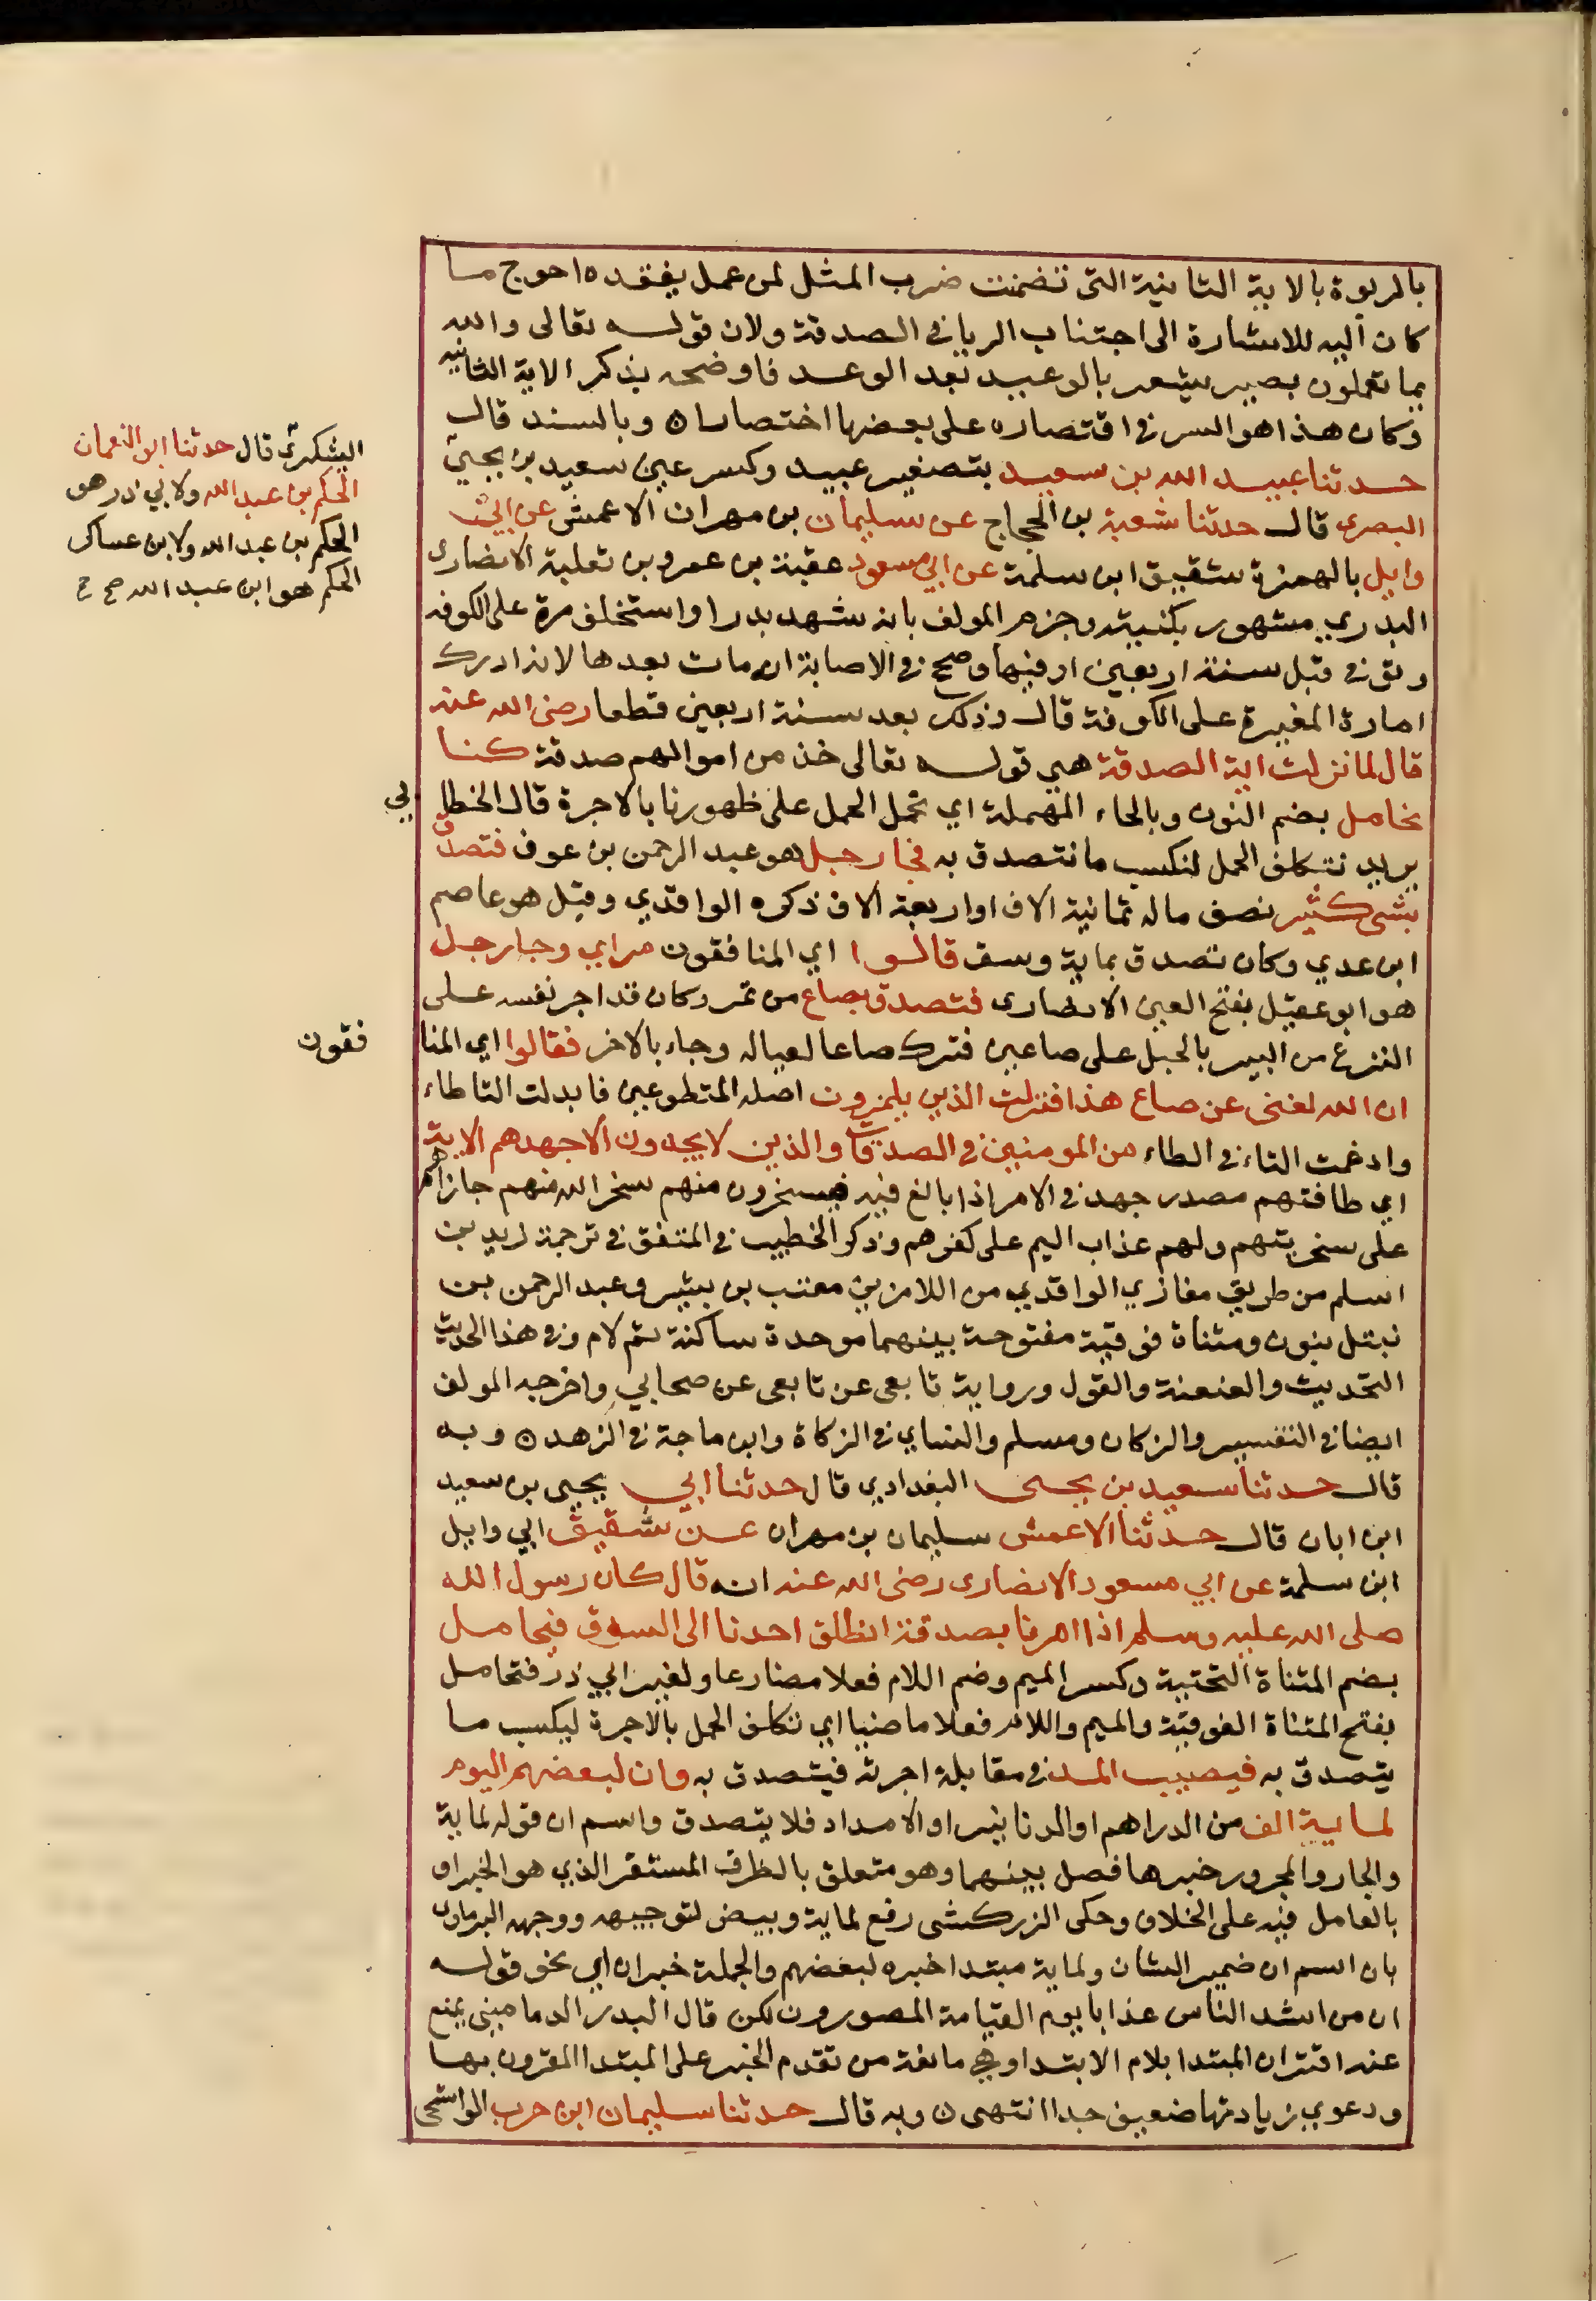 بالربوة بالاية الثانية التى تضمنت ضرب المثل لمن عمل يفقده احوج ما
كان اليه للاشارة الى اجتناب الريا فى الصدقة ولان قوله تعالى والله
بما تعملون بصير يشعر بالوعيد بعد الوعد فاوضحه بذكر الاية الثانيه
وكان هذا هو السر فى اقتصاره على بعضها اختصارا ٥ وبالسند قال
حدثنا عبيد الله بن سعيد بتصغير عبيد وكسر عين سعيد بن يحيى
اليشكرى قال حدثنا ابو النعمان
الحكم بن عبد الله ولابي ذر هو
الحكم بن عبد الله ولابن عساكر
الحكم هو ابن عبد الله صح
البصرى قال حدثنا شعبة بن الحجاج عن سليمان بن مهران الاعمش عن ابي
وايل بالهمزة شقيق ابن سلمة عن ابي مسعود عقبة بن عمرو بن ثعلبة الانصارى
البدري مشهور بكنيته وجزم المولف بانه شهد بدرا واستخلف مرة على الكوفه
وتوفى قبل سنة اربعين او فيها وصحح فى الاصابة انه مات بعدها لانه ادرك
امارة المغيرة على الكوفة قال وذلك بعد سنة اربعين قطعا رضى الله عنه
قال لما نزلت اية الصدقة هي قوله تعالى خذ من اموالهم صدقة كنا
نحامل بضم النون وبالحاء المهملة اي نحمل الحمل على ظهورنا بالاجرة قال الخطابي
يريد نتكلف الحمل لنكسب ما نتصدق به فجا رجل هو عبد الرحمن بن عوف فتصدق
بشى كثير نصف ماله ثمانية الاف او اربعة الاف ذكره الواقدي وقيل هو عاصم
ابن عدي وكان تصدق بماية وسق قالوا اي المنافقون مراي وجا رجل
هو ابو عقيل بفتح العين الانصارى فتصدق بصاع من تمر وكان قد اجر نفسه على
النزع من البير بالحبل على صاعين فترك صاعا لعياله وجاء بالاخر فقالوا اي المنا
فقون
ان الله لغنى عن صاع هذا فنزلت الذين يلمزون اصله المتطوعين فابدلت التا طاء
وادغمت التاء فى الطاء من المومنين فى الصدقات والذين لا يجدون الا جهدهم الاية
اي طاقتهم مصدر جهد فى الامر اذا بالغ فيه فيسخرون منهم سخر الله منهم جازاهم
على سخريتهم ولهم عذاب اليم على كفرهم وذكر الخطيب فى المتفق فى ترجمة زيد بن
اسلم من طريق مغازي الواقدي من اللامزين معتب بن بشير وعبد الرحمن بن
نبتل بنون ومثناة فوقية مفتوحة بينهما موحدة ساكنة ثم لام وفى هذا الحديث
التحديث والعنعنة والقول ورواية تابعى عن تابعى عن صحابي واخرجه المولف
ايضا فى التفسير والزكاه ومسلم والنساي فى الزكاة وابن ماجة فى الزهد ٥ وبه
قال حدثنا سعيد بن يحيى البغدادي قال حدثنا ابي يحيى بن سعيد
ابن ابان قال حدثنا الاعمش سليمان بن مهران عن شقيق ابي وايل
ابن سلمة عن ابي مسعود الانصارى رضى الله عنه انه قال كان رسول الله
صلى الله عليه وسلم اذا امرنا بصدقة انطلق احدنا الى السوق فيحامل
بضم المثناة التحتية وكسر الميم وضم اللام فعلا مضارعا ولغير ابي ذر فتحامل
بفتح المثناة الفوقية والميم واللام فعلا ماضيا اي تكلف الحمل بالاجرة ليكسب ما
يتصدق به فيصيب المد فى مقابلة اجرته فيتصدق به وان لبعضهم اليوم
لماية الف من الدراهم او الدنانير او الامداد فلا يتصدق واسم ان قوله لماية
والجار والمجرور خبرها فصل بينهما وهو متعلق بالظرف المستقر الذي هو الخبر او
بالعامل فيه على الخلاف وحكى الزركشى رفع لماية وبيض لتوجيهه ووجهه البرماوى
بان اسم ان ضمير الشان ولماية مبتدا خبره لبعضهم والجملة خبر ان اي نحو قوله
ان من اشد الناس عذابا يوم القيامة المصورون لكن قال البدر الدمامينى يمنع
عنه اقتران المبتدا بلام الابتدا وهي مانعة من تقدم الخبر على المبتدا المقرون بها
ودعوي زيادتها ضعيف جدا انتهى ٥ وبه قال حدثنا سليمان ابن حرب الواشحى